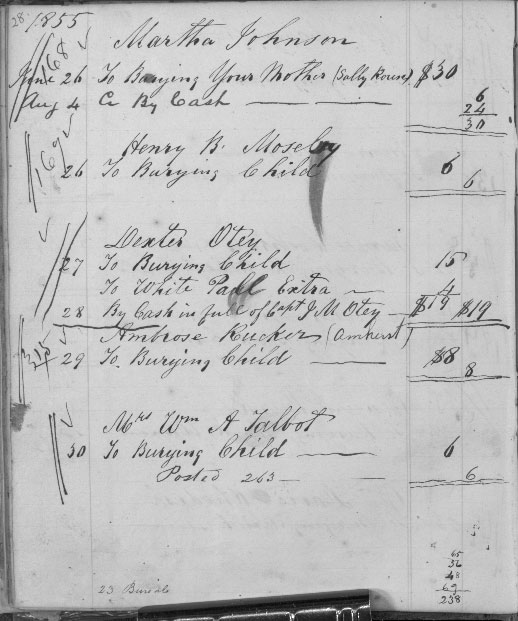 28 1855
Martha Johnson
168
June 26 To Burying Your Mother (Sally Rouse) $30
6
Aug 4 Cr By Cash — — 24
30
Henry B. Moseley
169
26 To Burying Child 6
6
Dexter Otey
27 To Burying Child 15
To White Pall Extra — 4
28 By Cash in full of Capt J M Otey — $19 $19
Ambrose Rucker (Amherst)
315
29 To Burying Child — $8
8
Mrs Wm A Talbot
30 To Burying Child — 6
Posted 263 — — 6
65
56
48
69
238
23 Burials